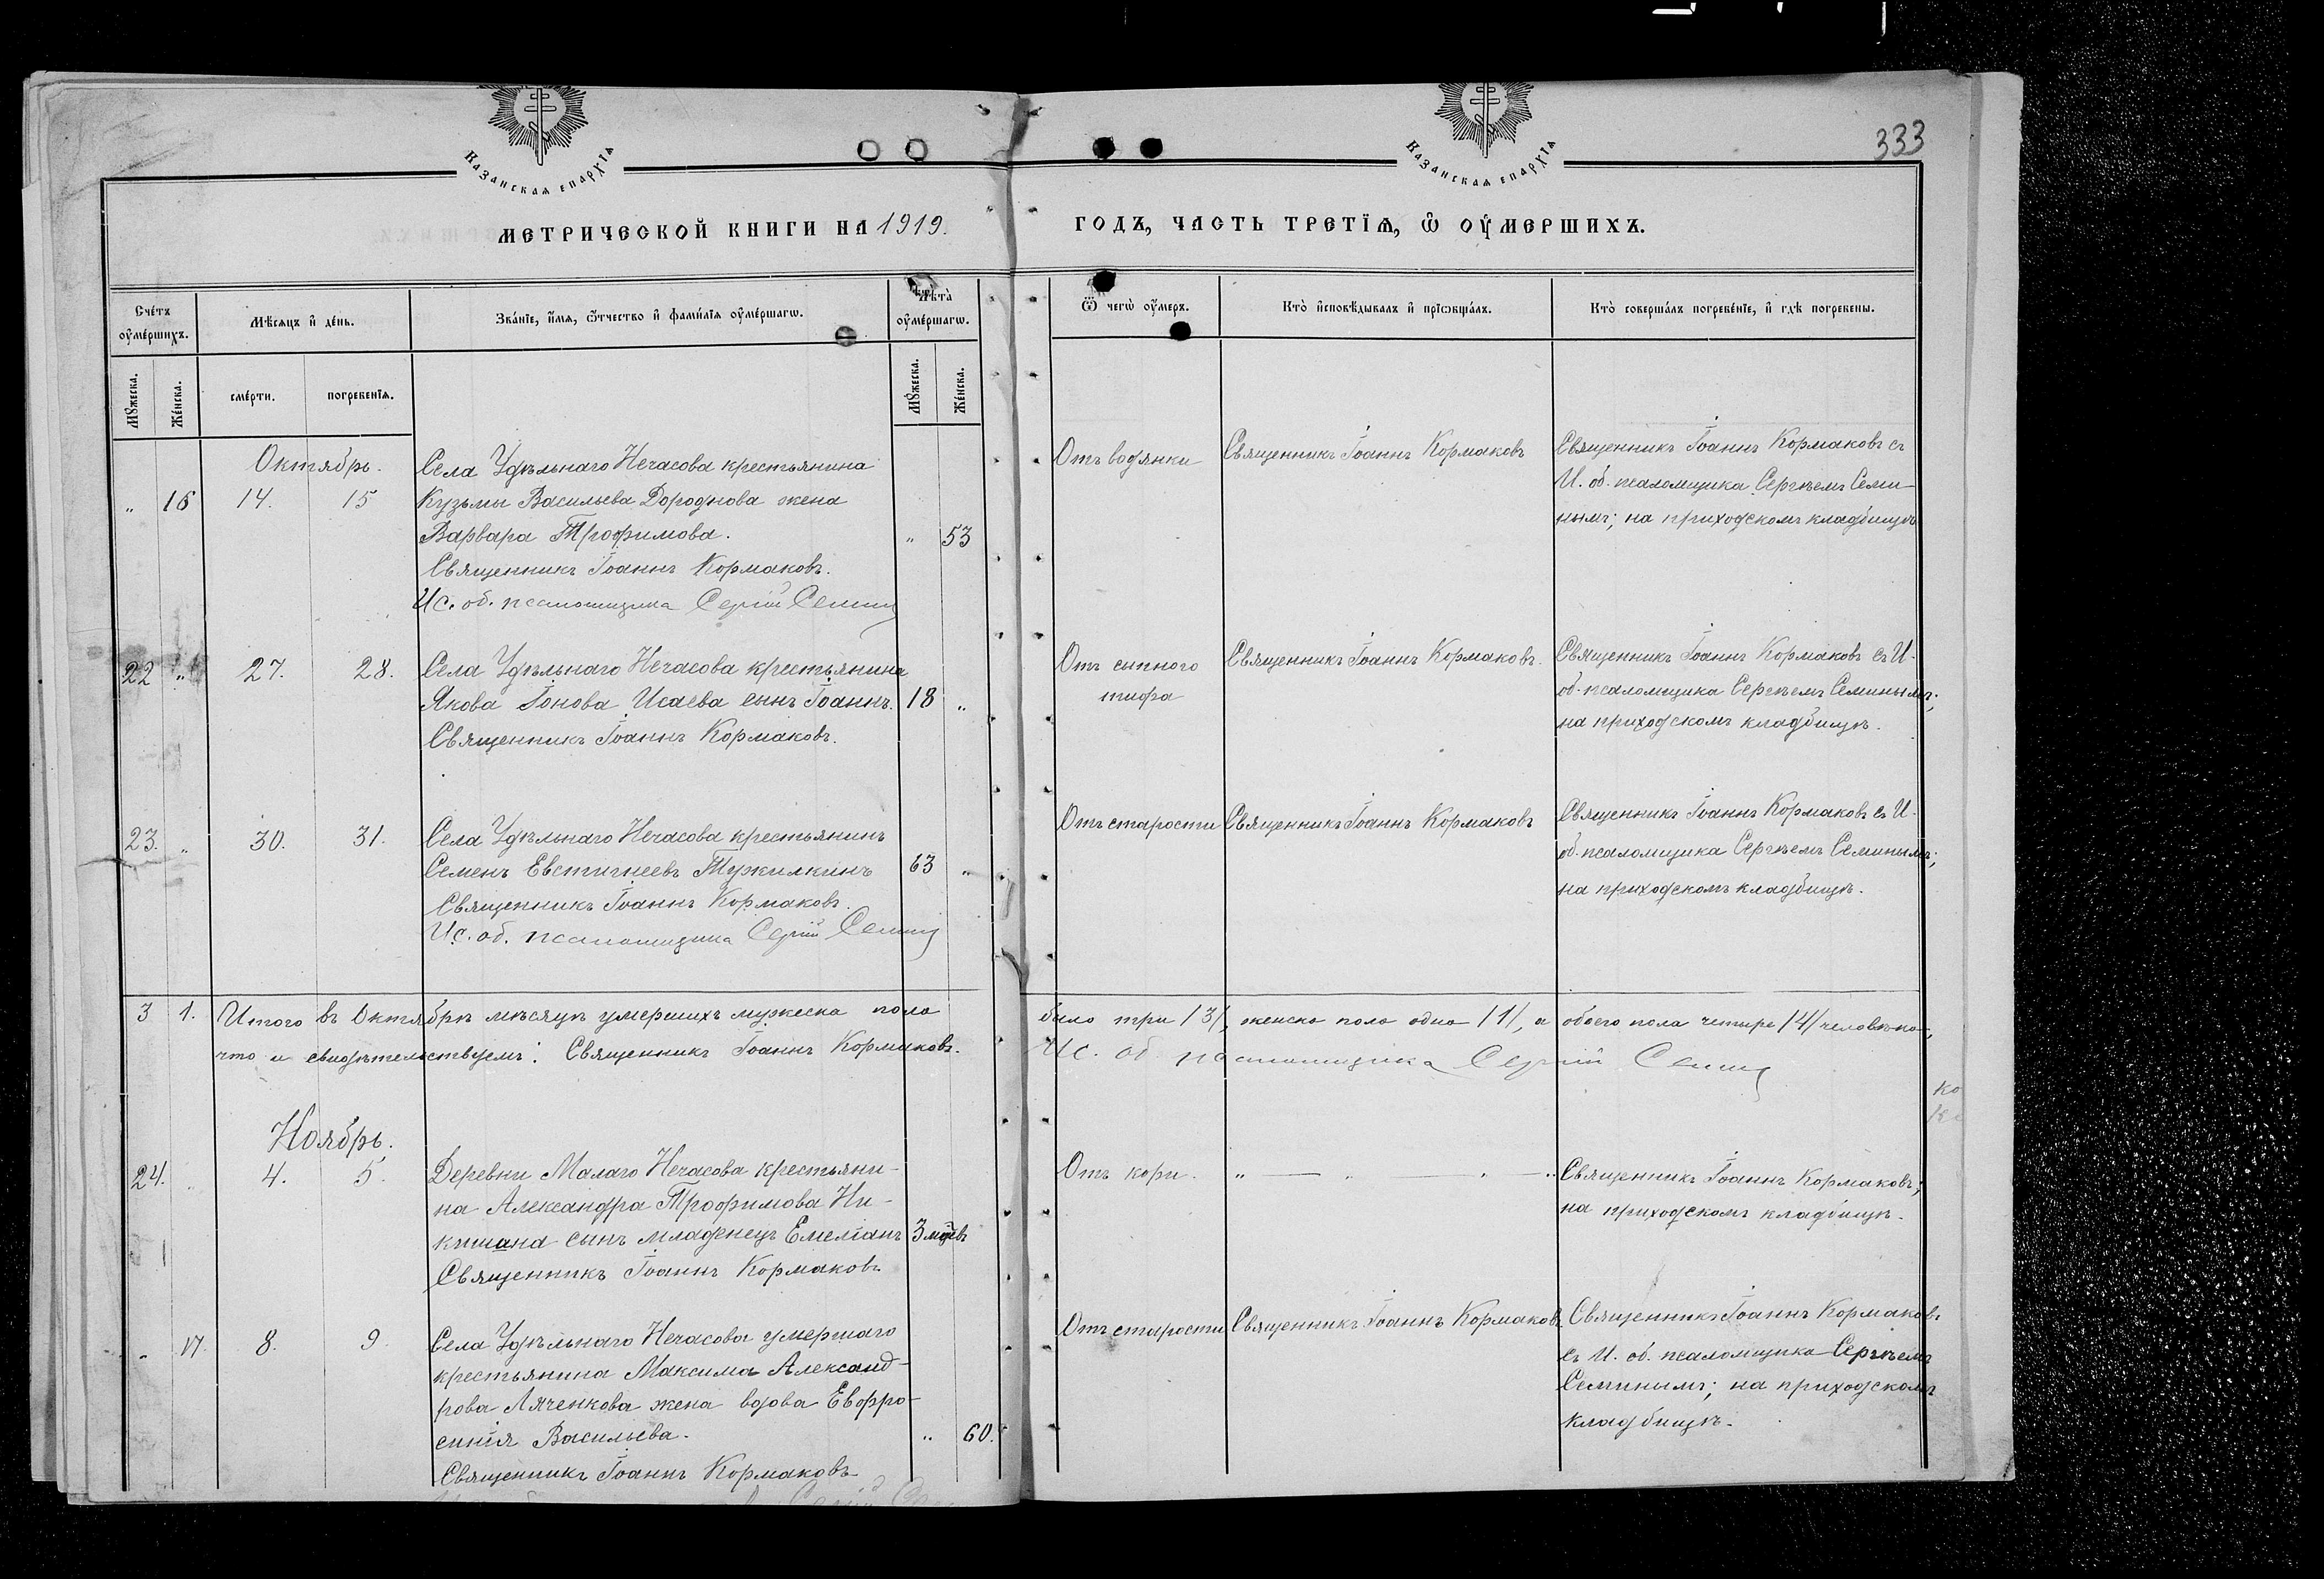 Казанская епархїѧ
Казанская епархїѧ
333
МЕТРИЧЕСКОЙ КНИГИ НА 1919.
ГОДЪ, ЧАСТЬ ТРЕТЇѦ, Ѽ ОУМЕРШИХЪ.
Сче́тъ оумéршихъ.
Мѣсяцъ и́ де́нь.
Зва́нїе, и́мѧ, ѻ́тчество и́ фами́лїѧ оумéршагѡ.
Лѣта̀ оумéршагѡ.
Ѿ чегѡ̀ оу́меръ.
Кто̀ и́сповѣ́дывалъ и́ прїѡбща́лъ.
Кто̀ соверша́лъ погребе́нїе, и́ гдѣ̀ погребены.
Мꙋжеска.
Же́нска.
сме́рти.
погребенїѧ.
Мꙋжеска.
Же́нска.
Октябрь.
„ 16 14. 15
Села Удѣльнаго Нечасова крестьянина
Кузьмы Васильева Дороднова жена
Варвара Трофимова. „ 53
Священникъ Іоаннъ Кормаковъ.
Ис. об. псаломщика Сергій Семин
Отъ водянки
Священникъ Іоаннъ Кормаковъ
Священникъ Іоаннъ Кормаковъ съ
И. об. псаломщика Сергѣемъ Семи-
нымъ; на приходскомъ кладбищѣ
22 „ 27. 28.
Села Удѣльнаго Нечасова крестьянина
Якова Іонова Исаева сынъ Іоаннъ. 18 „
Священникъ Іоаннъ Кормаковъ.
Отъ сыпного
тифа
Священникъ Іоаннъ Кормаковъ.
Священникъ Іоаннъ Кормаковъ съ И.
об. псаломщика Сергѣемъ Семинымъ;
на приходскомъ кладбищѣ.
23. „ 30. 31.
Села Удѣльнаго Нечасова крестьянинъ
Семенъ Евстигнеевъ Тужилкинъ 63 „
Священникъ Іоаннъ Кормаковъ.
Ис. об. псаломщика Сергій Семин
Отъ старости
Священникъ Іоаннъ Кормаковъ
Священникъ Іоаннъ Кормаковъ съ И.
об. псаломщика Сергѣемъ Семинымъ;
на приходскомъ кладбищѣ.
3 1. Итого въ Октябрѣ мѣсяцѣ умершихъ мужеска пола было три /3/, женска пола одна /1/, а обоего пола четыре /4/ человѣка,
что и свидѣтельствуемъ: Священникъ Іоаннъ Кормаковъ. Ис. об. псаломщика Сергій Семин
Ноябрь.
24. „ 4. 5.
Деревни Малаго Нечасова крестьяни-
на Александра Трофимова Ни-
кишана сынъ младенецъ Емеліанъ 3 мѣсѣ
Священникъ Іоаннъ Кормаковъ
Отъ кори.
„ — „ — „ — „
Священникъ Іоаннъ Кормаковъ;
на приходскомъ кладбищѣ.
„ 17. 8. 9.
Села Удѣльнаго Нечасова умершаго
крестьянина Максима Александ-
рова Ляченкова жена вдова Евфро-
синія Васильева. „ 60.
Священникъ Іоаннъ Кормаковъ
Отъ старости
Священникъ Іоаннъ Кормаковъ.
Священникъ Іоаннъ Кормаковъ
съ И. об. псаломщика Сергѣемъ
Семинымъ; на приходскомъ
кладбищѣ.